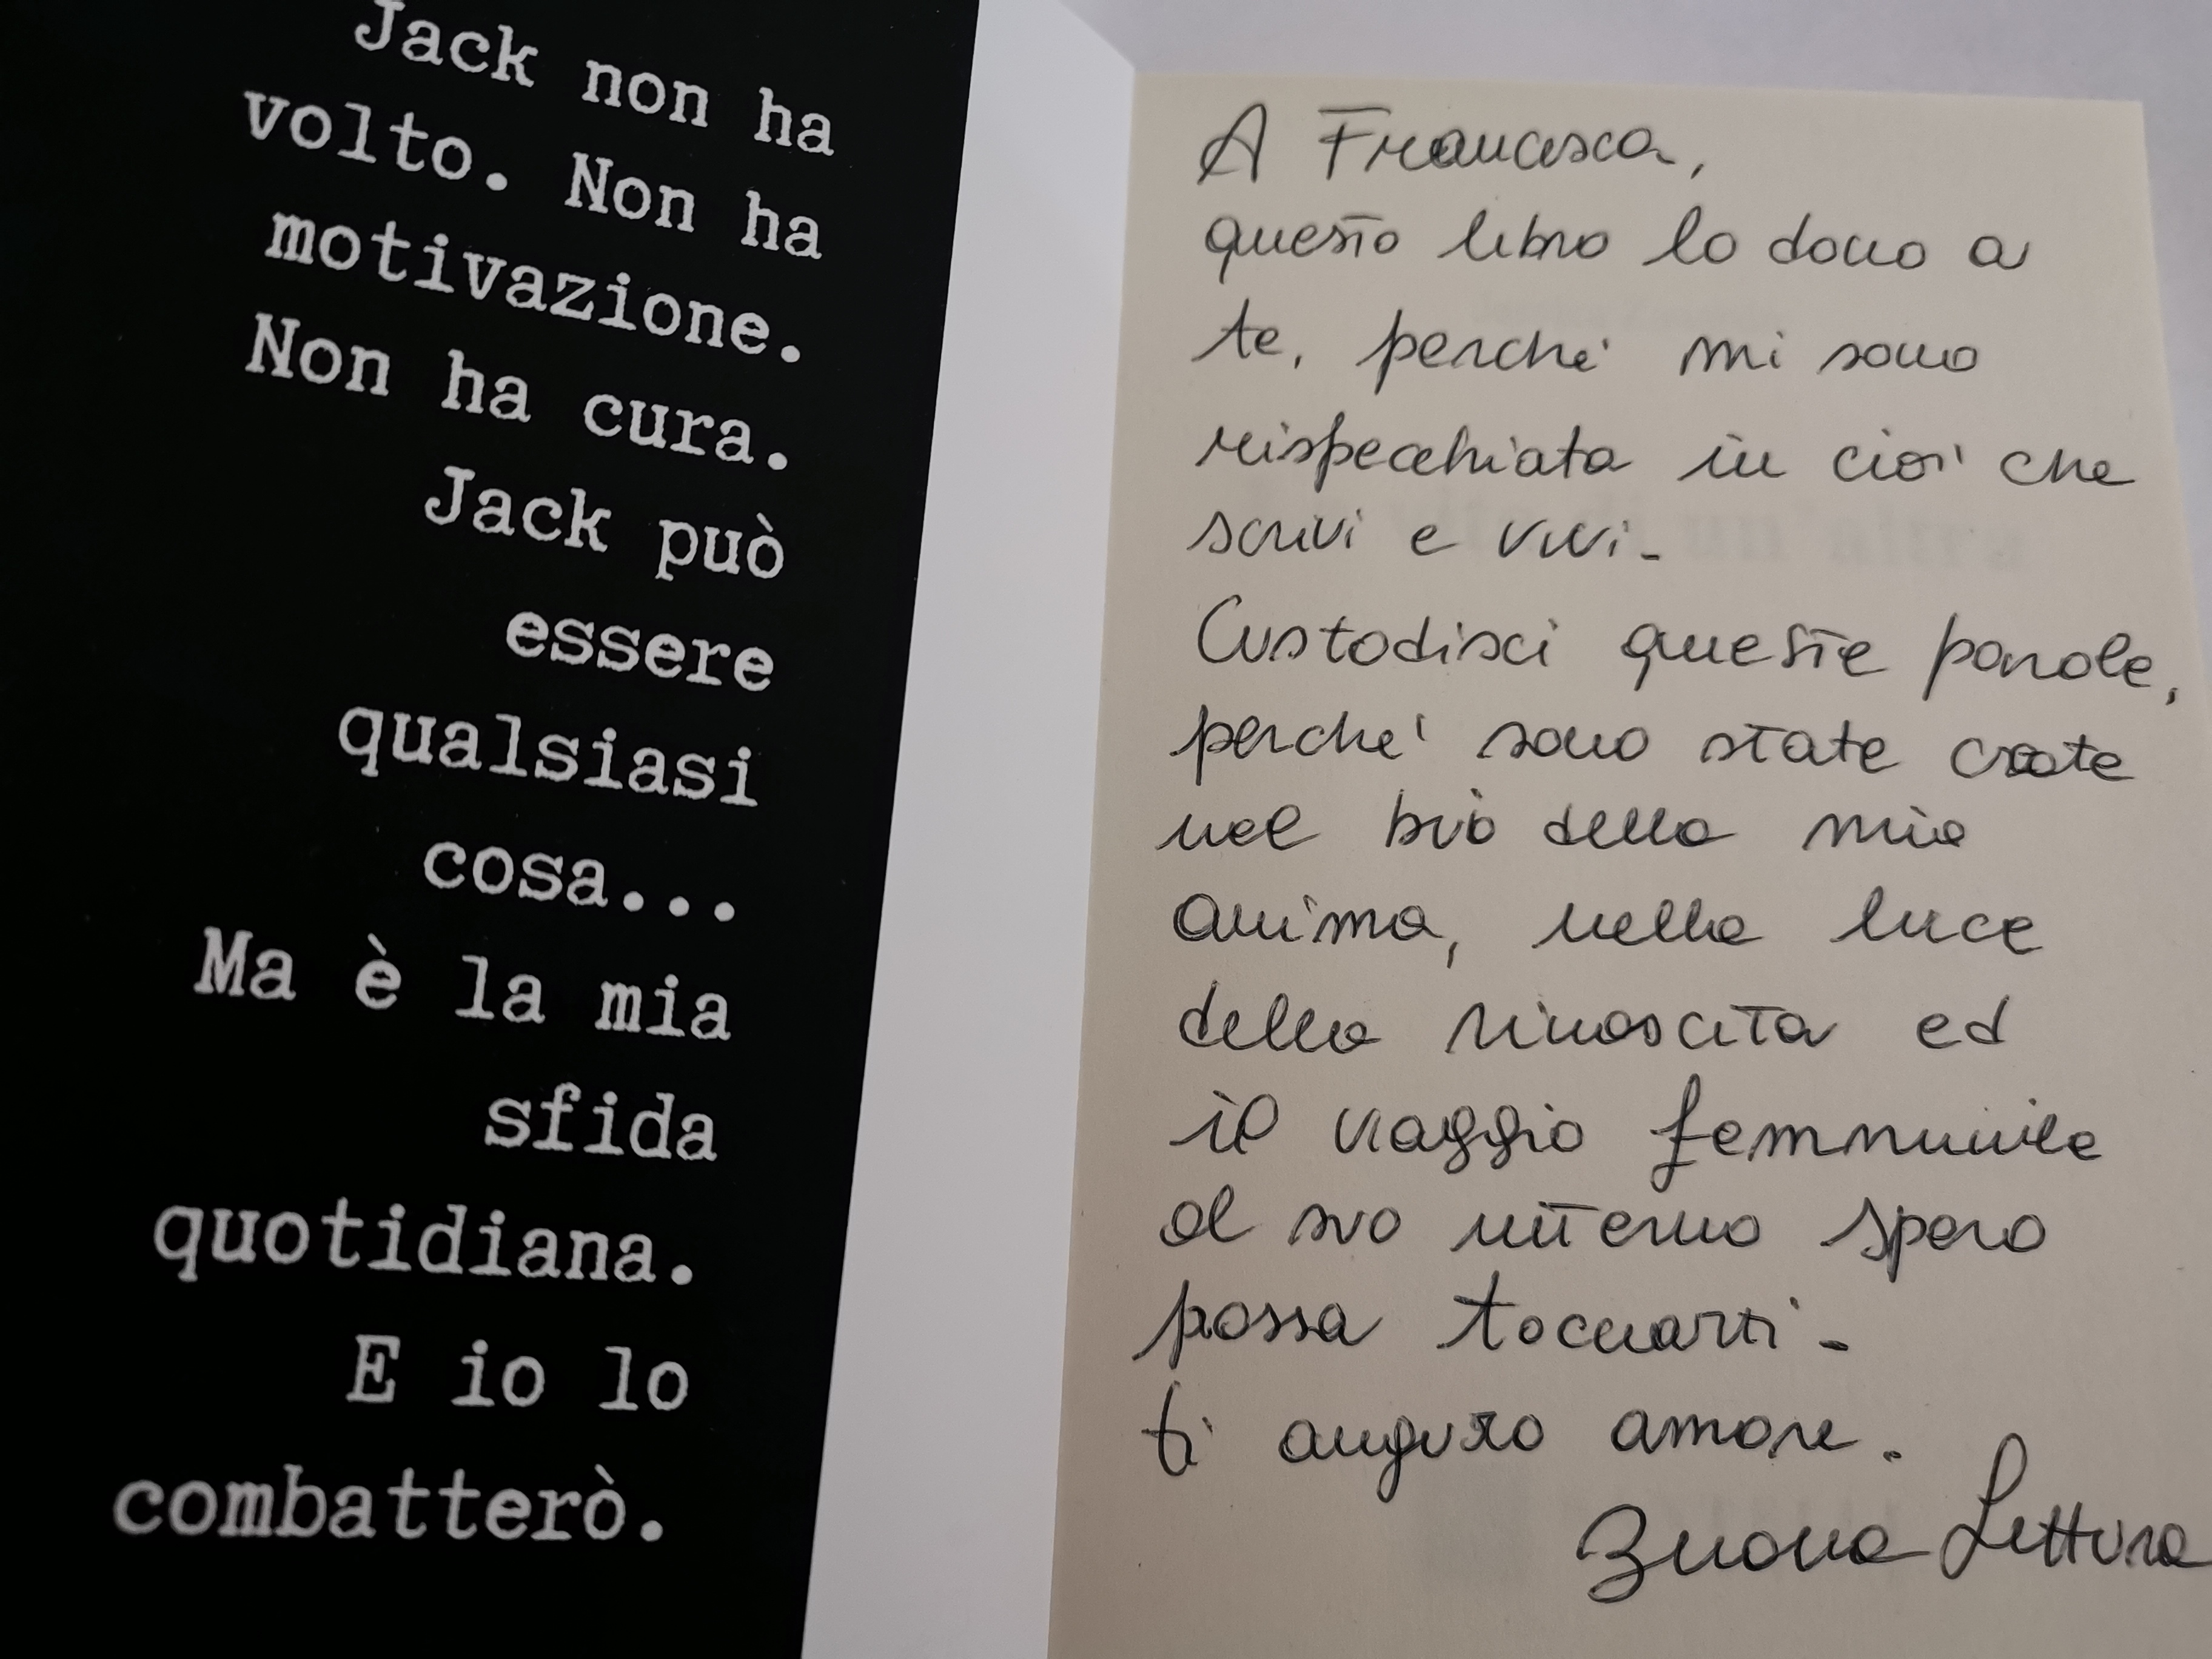 Jack non ha
volto. Non ha
motivazione.
Non ha cura.
Jack può
essere
qualsiasi
cosa...
Ma è la mia
sfida
quotidiana.
E io lo
combatterò.
A Francesca,
questo libro lo dono a
te, perché mi sono
rispecchiata in ciò che
scrivi e vivi.
Custodisci queste parole,
perché sono state create
nel bio della mia
anima, nella luce
della rinascita ed
il viaggio femminile
al suo interno spero
possa toccarti.
ti auguro amore.
Buona Lettura